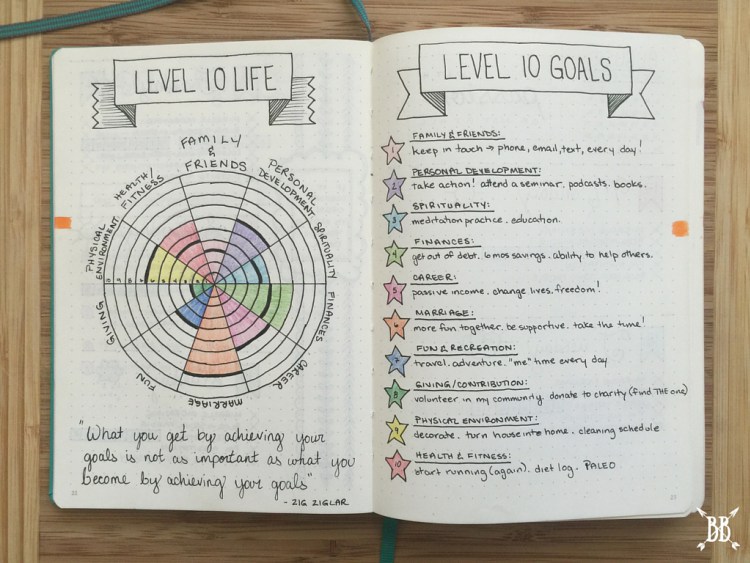 LEVEL 10 LIFE
FAMILY
&
FRIENDS
PERSONAL
DEVELOPMENT
SPIRITUALITY
FINANCES
CAREER
MARRIAGE
FUN
GIVING
PHYSICAL
ENVIRONMENT
HEALTH/
FITNESS
"What you get by achieving your
goals is not as important as what you
become by achieving your goals"
- ZIG ZIGLAR
LEVEL 10 GOALS
FAMILY & FRIENDS:
1 keep in touch → phone, email, text, every day!
PERSONAL DEVELOPMENT:
2 take action! attend a seminar. podcasts. books.
SPIRITUALITY:
3 meditation practice. education.
FINANCES:
4 get out of debt. 6 mos savings. ability to help others.
CAREER:
5 passive income. change lives. freedom!
MARRIAGE:
6 more fun together. be supportive. take the time!
FUN & RECREATION:
7 travel. adventure. "me" time every day
GIVING/CONTRIBUTION:
8 volunteer in my community. donate to charity (find THE one)
PHYSICAL ENVIRONMENT:
9 decorate. turn house into home. cleaning schedule
HEALTH & FITNESS:
10 start running (again). diet log. PALEO
BB